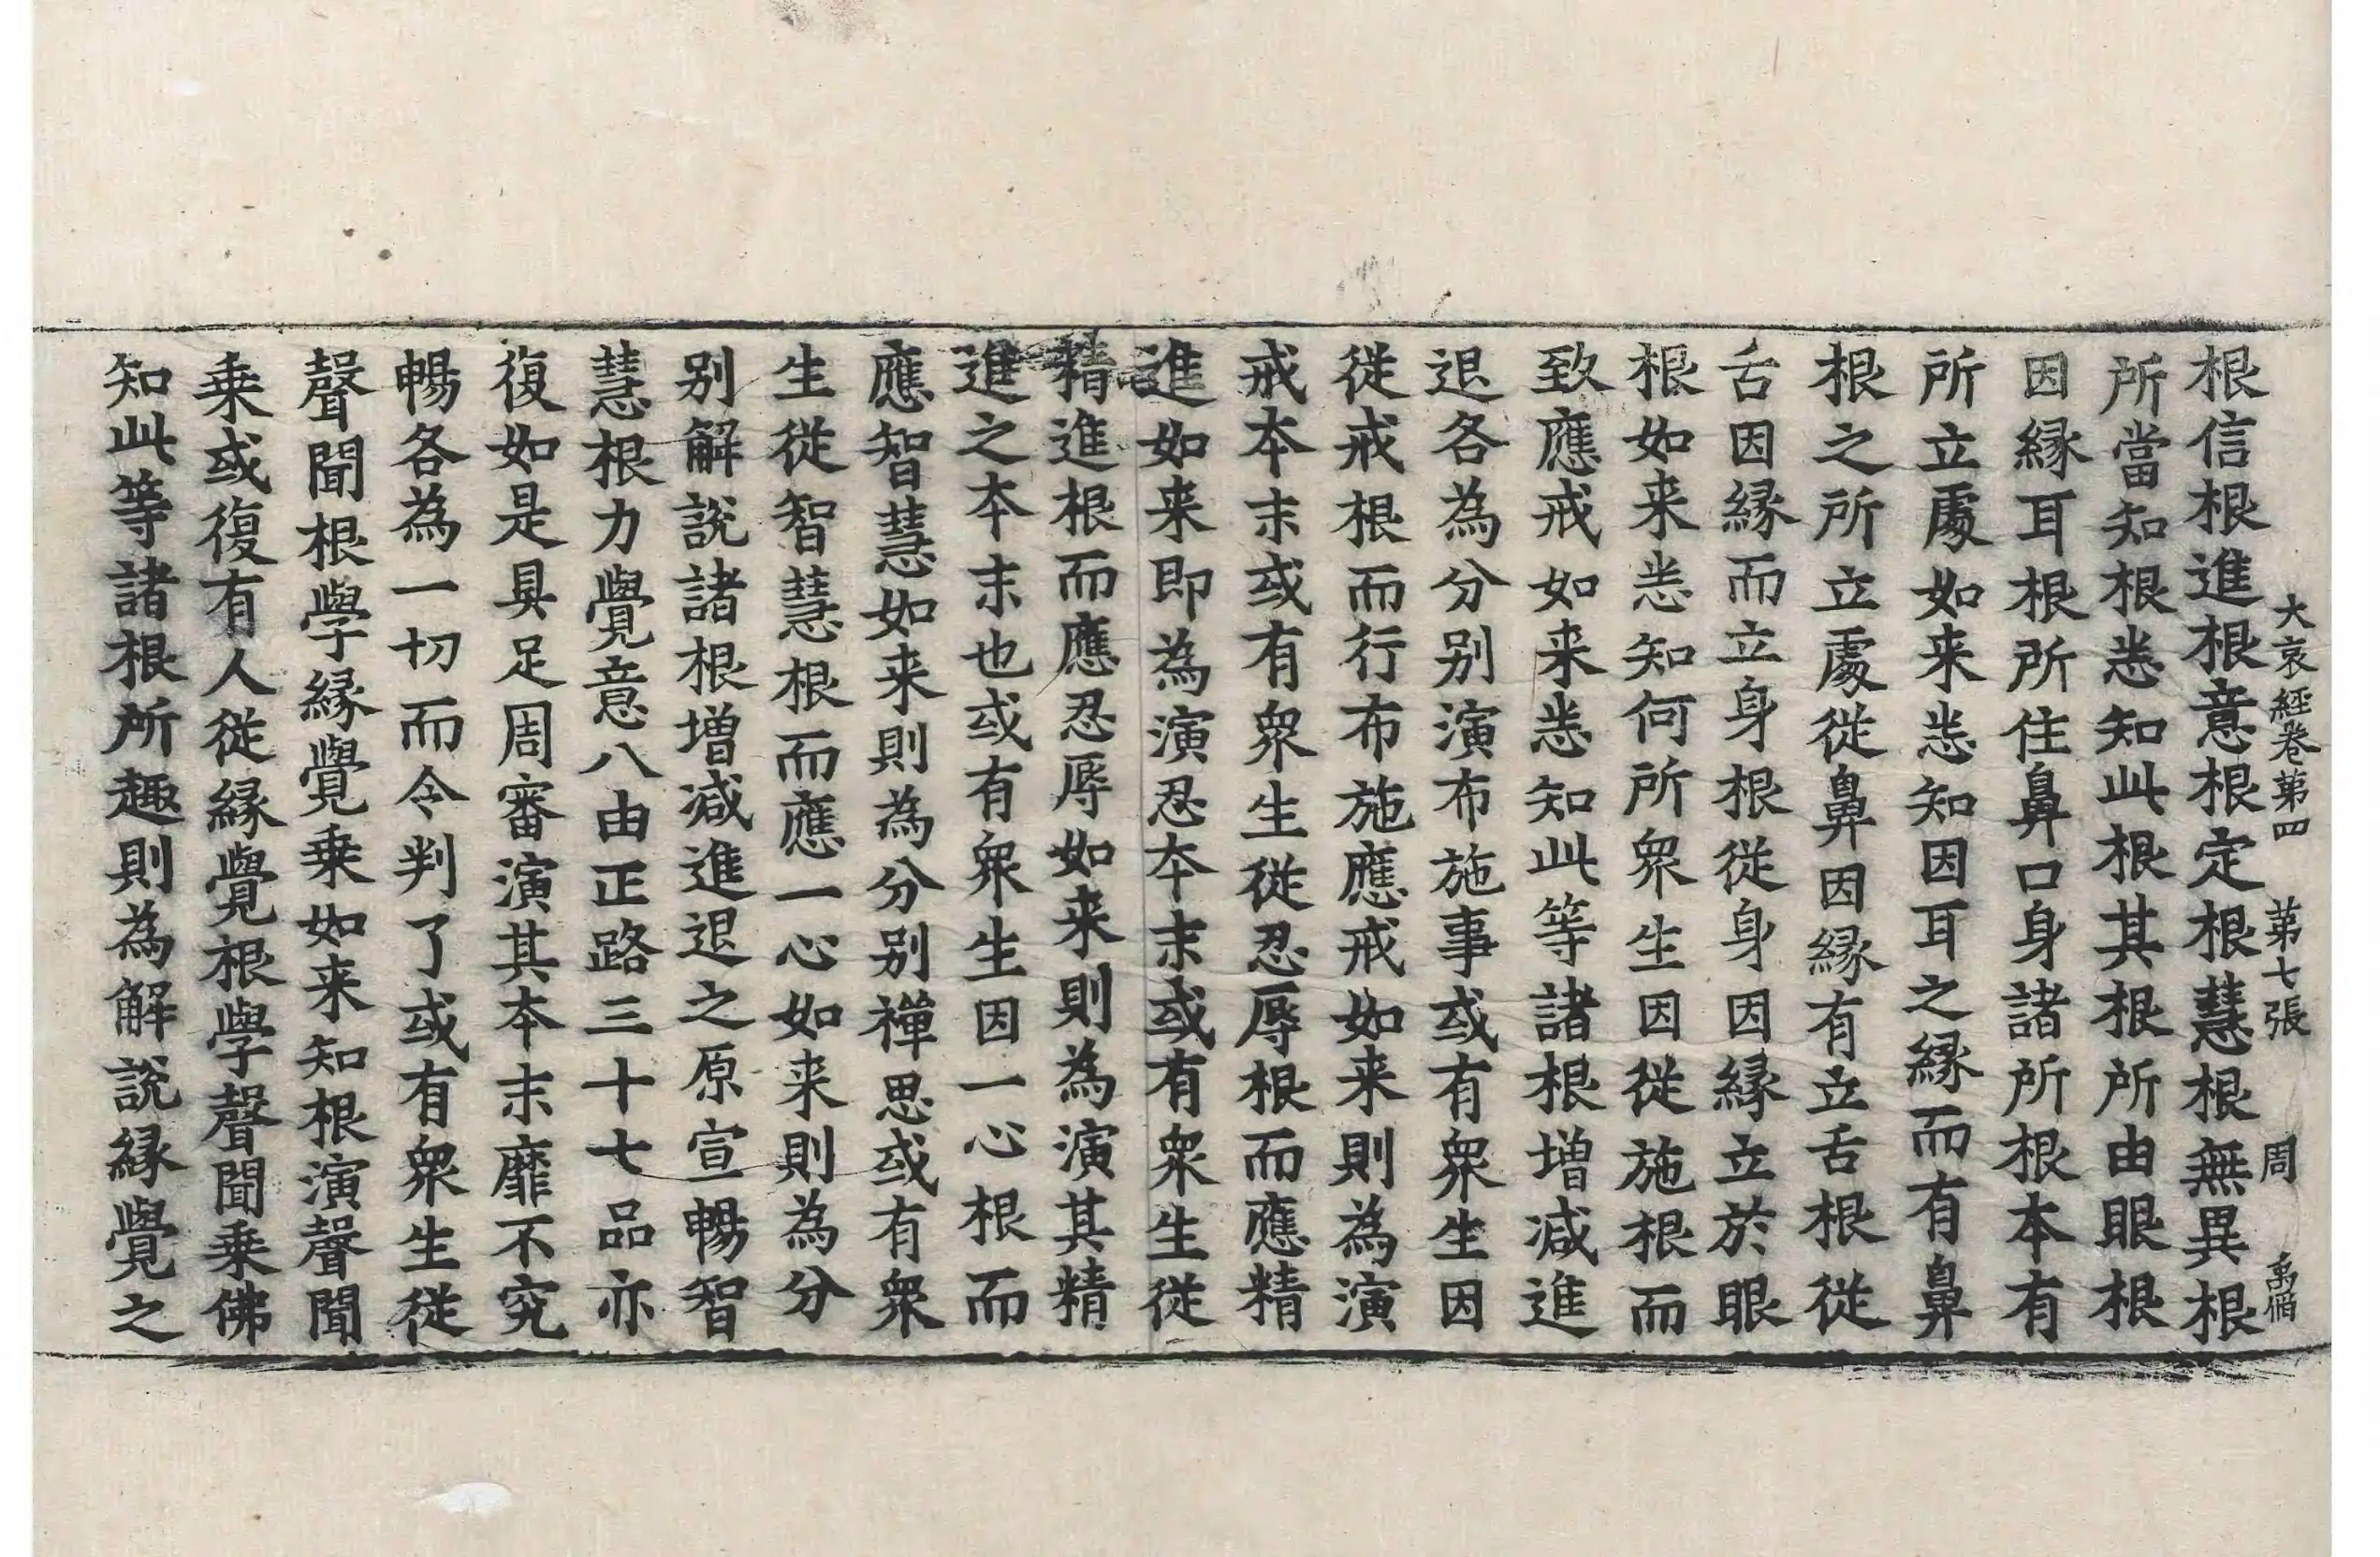 大哀經卷第四 第七張 周
根信根進根意根定根慧根無異根
所當知根悉知此根其根所由眼根
因縁耳根所住鼻口身諸所根本有
所立處如来悉知因耳之縁而有鼻
根之所立處從鼻因縁有立舌根從
舌因縁而立身根從身因縁立於眼
根如来悉知何所衆生因從施根而
致應戒如来悉知此等諸根增減進
退各為分别演布施事或有衆生因
從戒根而行布施應戒如来則為演
戒本末或有衆生從忍辱根而應精
進如来即為演忍本末或有衆生從
精進根而應忍辱如来則為演其精
進之本末也或有衆生因一心根而
應智慧如来則為分别禪思或有衆
生從智慧根而應一心如来則為分
别解說諸根增減進退之原宣暢智
慧根力覺意八由正路三十七品亦
復如是具足周審演其本末靡不究
暢各為一切而令判了或有衆生從
聲聞根學縁覺乗如来知根演聲聞
乗或復有人從縁覺根學聲聞乗佛
知此等諸根所趣則為解說縁覺之